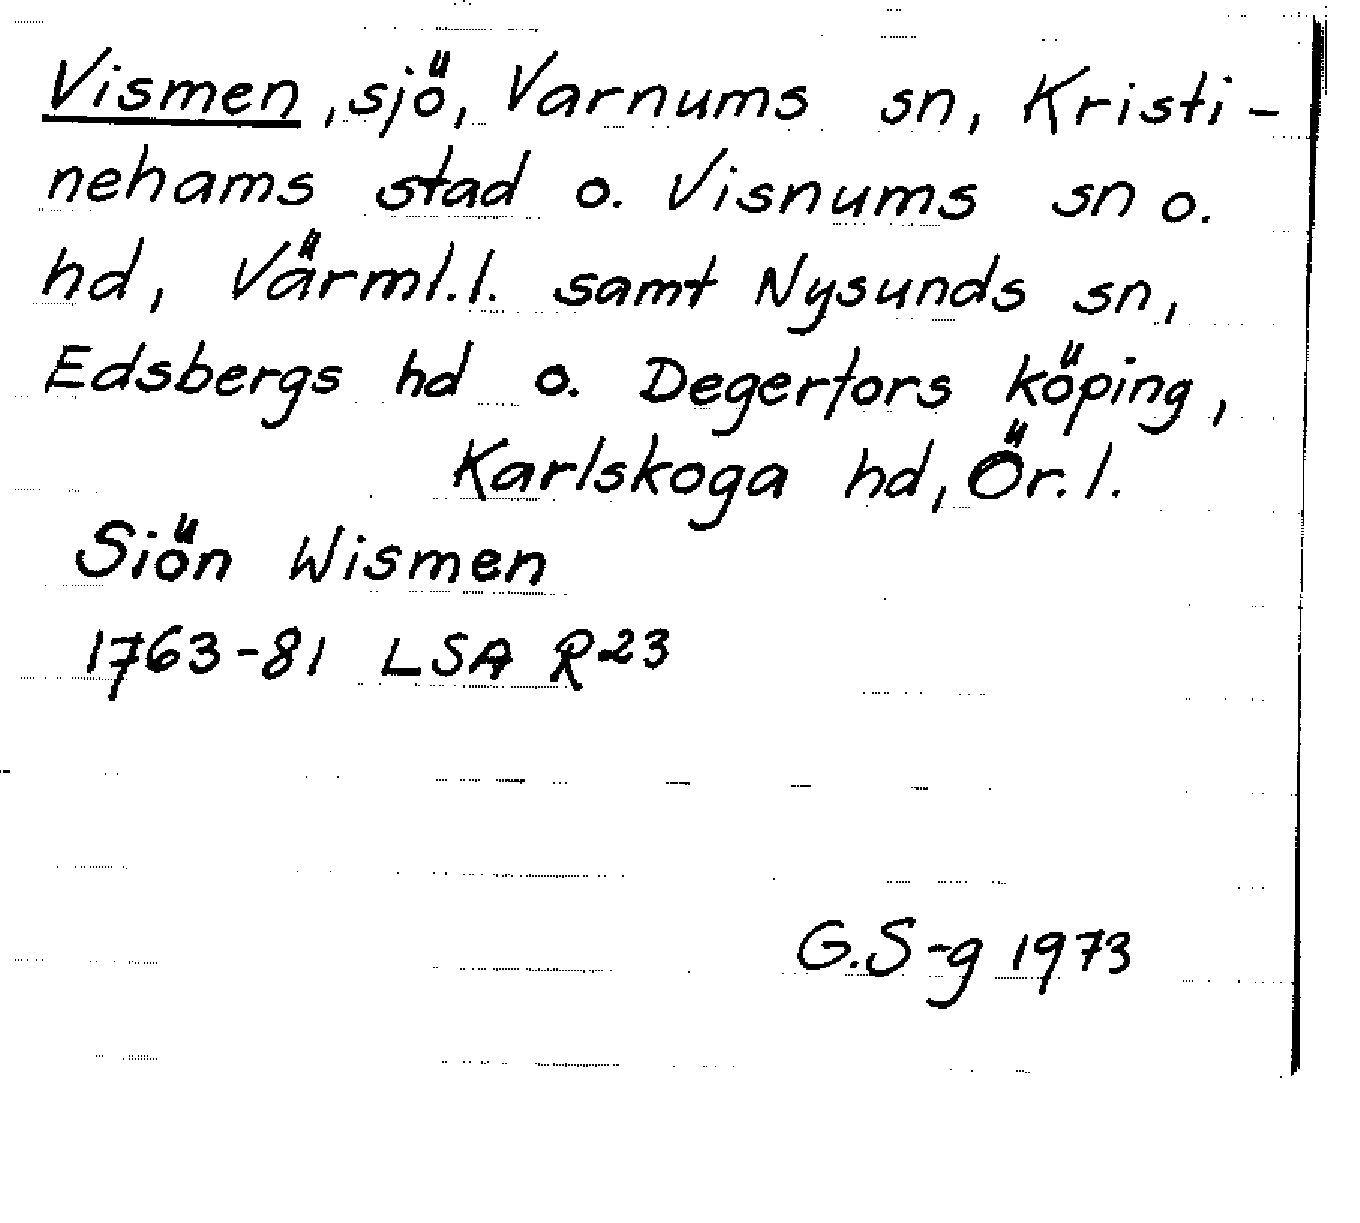 Vismen, sjö, Varnums sn, Kristi-
nehams stad o. Visnums sn o.
hd, Värml.l. samt Nysunds sn,
Edsbergs hd o. Degerfors köping,
Karlskoga hd, Ör.l.
Siön Wismen
1763-81 LSA R23
G.S-g 1973